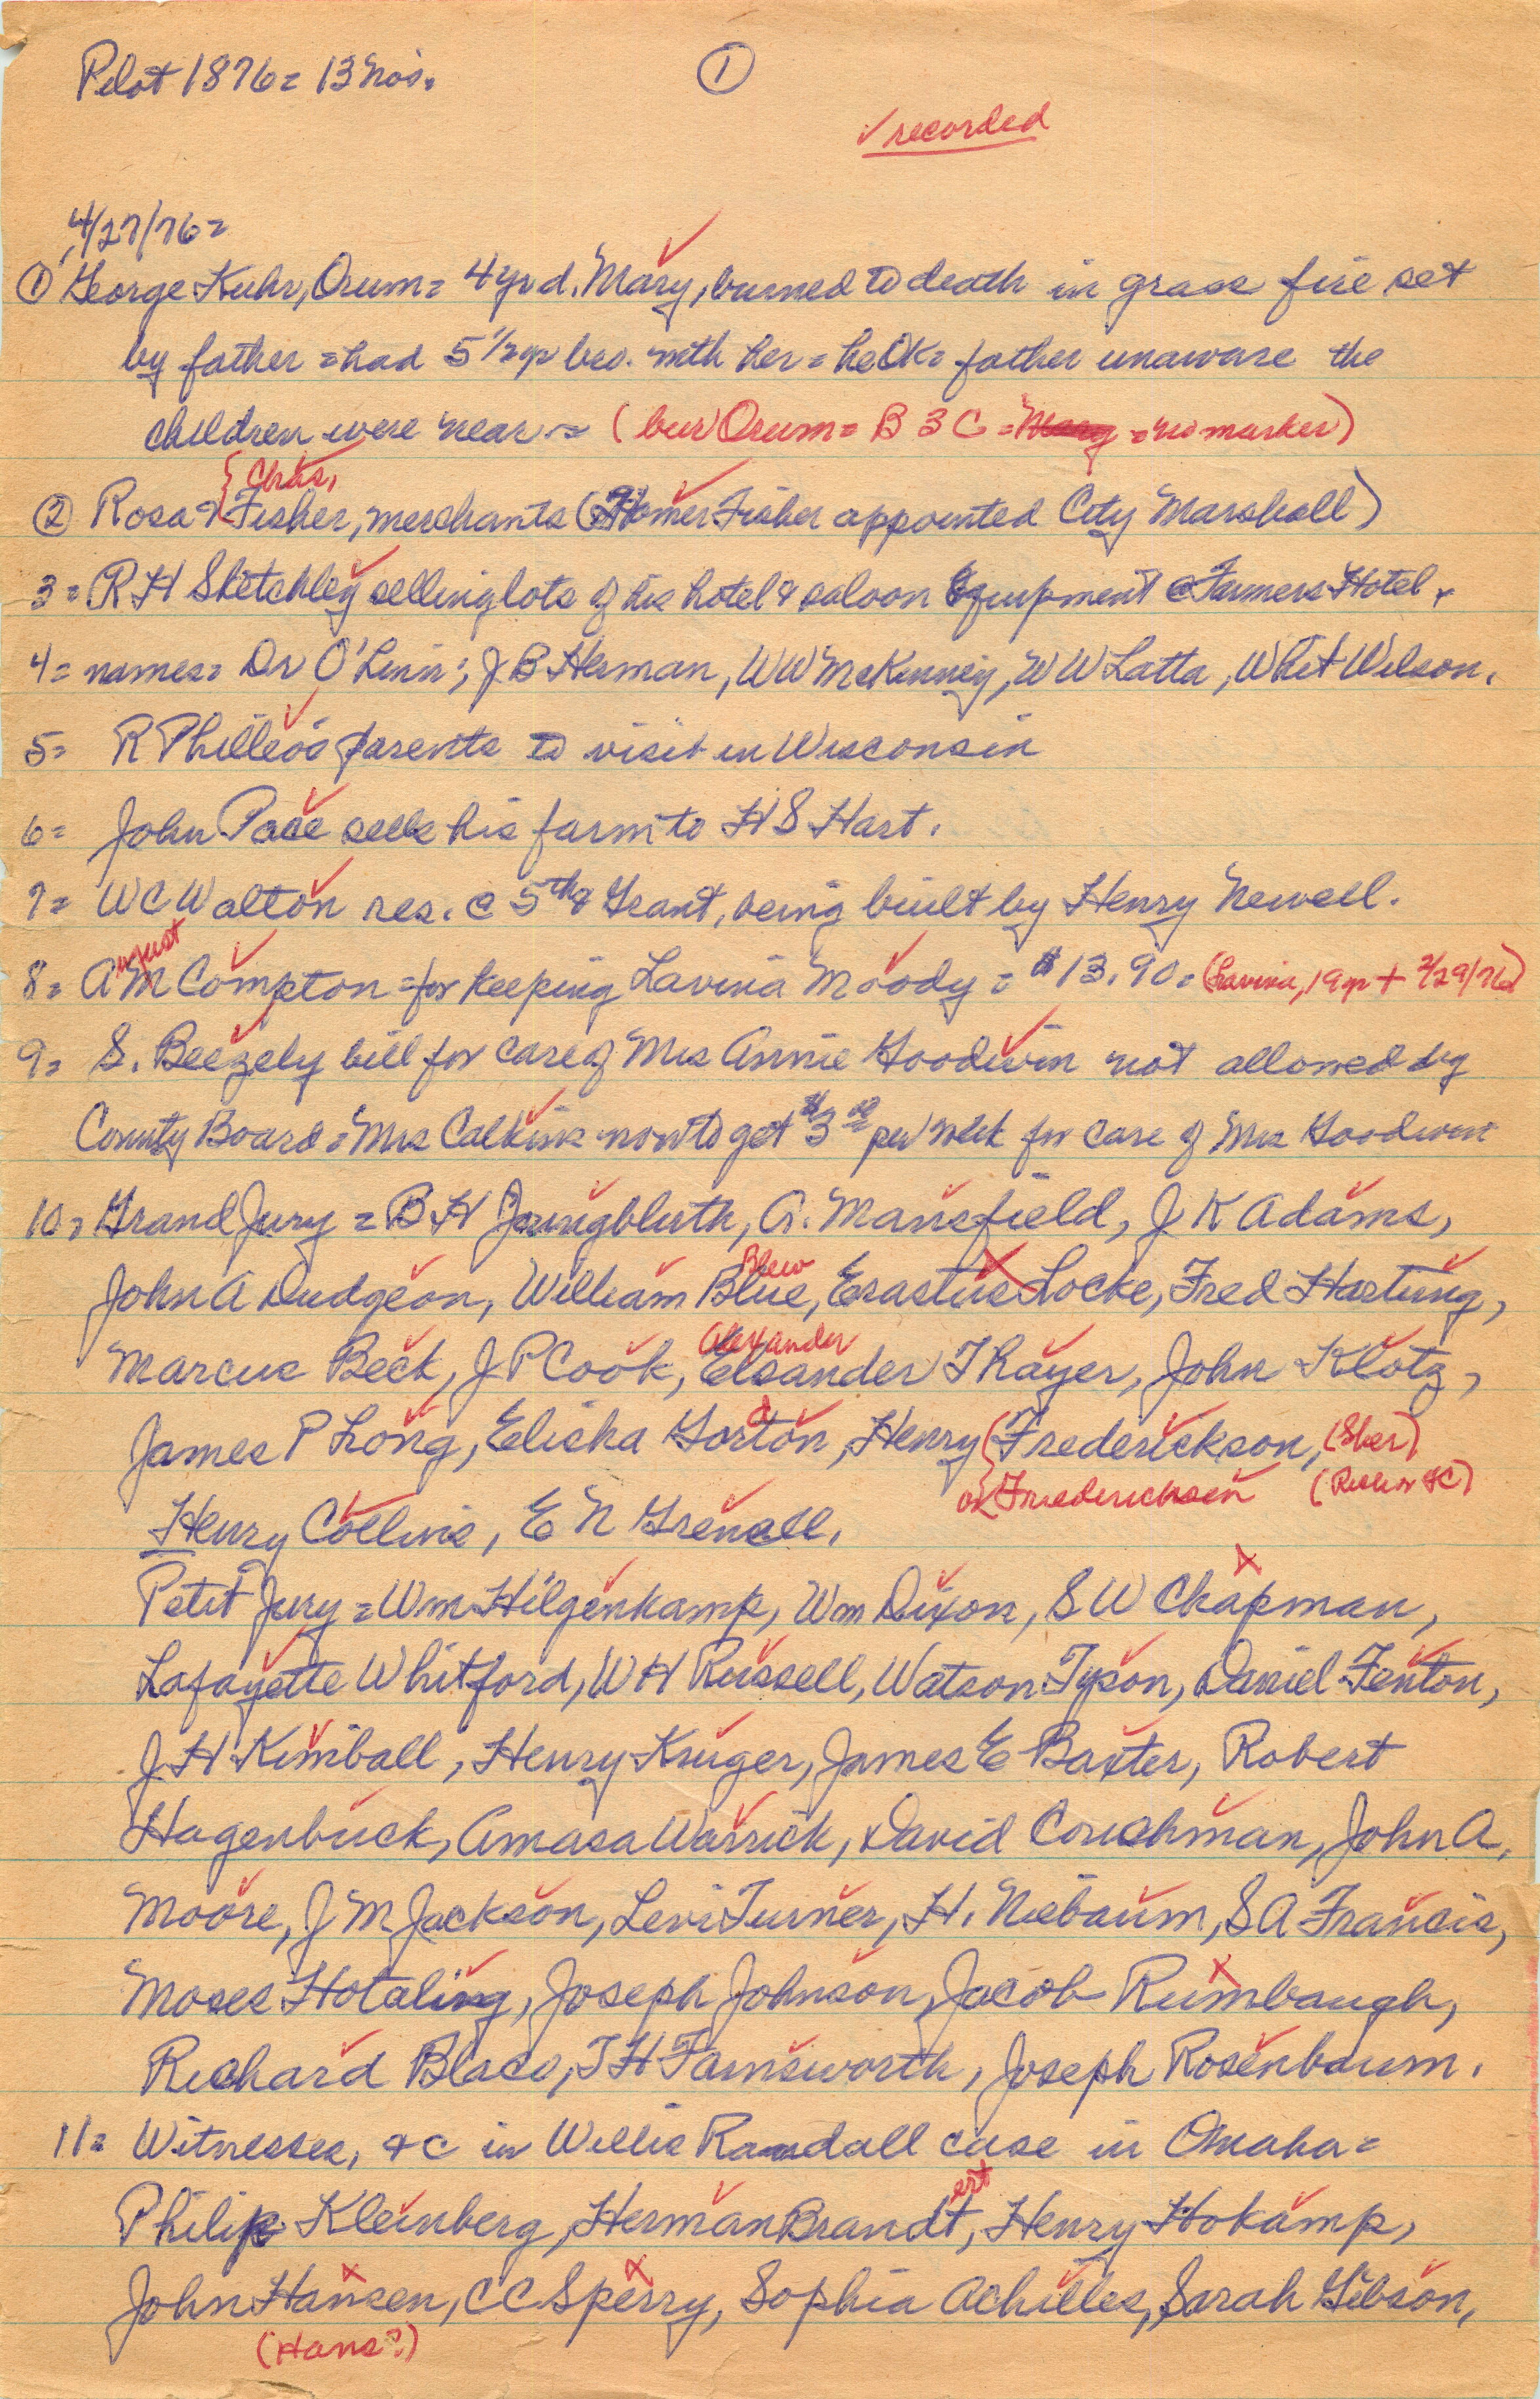 Pilot 1876= 13 Nos.
①
✓ recorded
4/27/76=
① George Kuhr, Orum= 4 yr d. Mary, burned to death in grass fire set
by father = had 5 1/2 yr bro. with her = he OK= father unaware the
children were near.= (bur Orum= B 3 C = Mary = no marker)
{Chas,
② Rosa & Fisher, merchants (Homer Fisher appointed City Marshall)
3= R H Sketchley selling lots of his hotel & saloon Equipment @ Farmers Hotel.
4= names= Dr O'Linn; J B Herman, W W McKinney, W W Latta, Whit Wilson.
5= R Philleo's parents to visit in Wisconsin
6= John Pace sells his farm to H S Hart.
7= W C Walton res. @ 5th & Grant, being built by Henry Newell.
ugust
8= A M Compton = for keeping Lavina Moody = $13.90= (Lavina, 19 yr + 2/29/76)
9= S. Beezely bill for care of Mrs Annie Goodwin not allowed by
County Board = Mrs Calkins now to get $3 00 per week for care of Mrs Goodwin
10= Grand Jury = B H Jungbluth, A. Mansfield, J K Adams,
Blew
John A Dudgeon, William Blue, Erastus Locke, Fred Hartung,
Alexander
Marcus Beck, J P Cook, Elsander Thayer, John Klotz,
d
James P Long, Elisha Gorton, Henry {Frederickson, (Sher)
or Friedericksen (Richr &C)
Henry Collins, E N Grenell,
Petit Jury = Wm Hilgenkamp, Wm Dixon, S W Chapman,
Lafayette Whitford, W H Russell, Watson Tyson, Daniel Fenton,
J H Kimball, Henry Kruger, James E Baxter, Robert
Hagenbuck, Amasa Warrick, David Couchman, John A.
Moore, J M Jackson, Levi Turner, H. Niebaum, S A Francis,
Moses Hotaling, Joseph Johnson, Jacob Rumbaugh,
Richard Blaco, T H Farnsworth, Joseph Rosenbaum.
11= Witnesses, &c in Willis Randall case in Omaha=
ert
Philip Kleinberg, Herman Brandt, Henry Hokamp,
John Hansen, C C Sperry, Sophia Achilles, Sarah Gibson,
(Hans?)